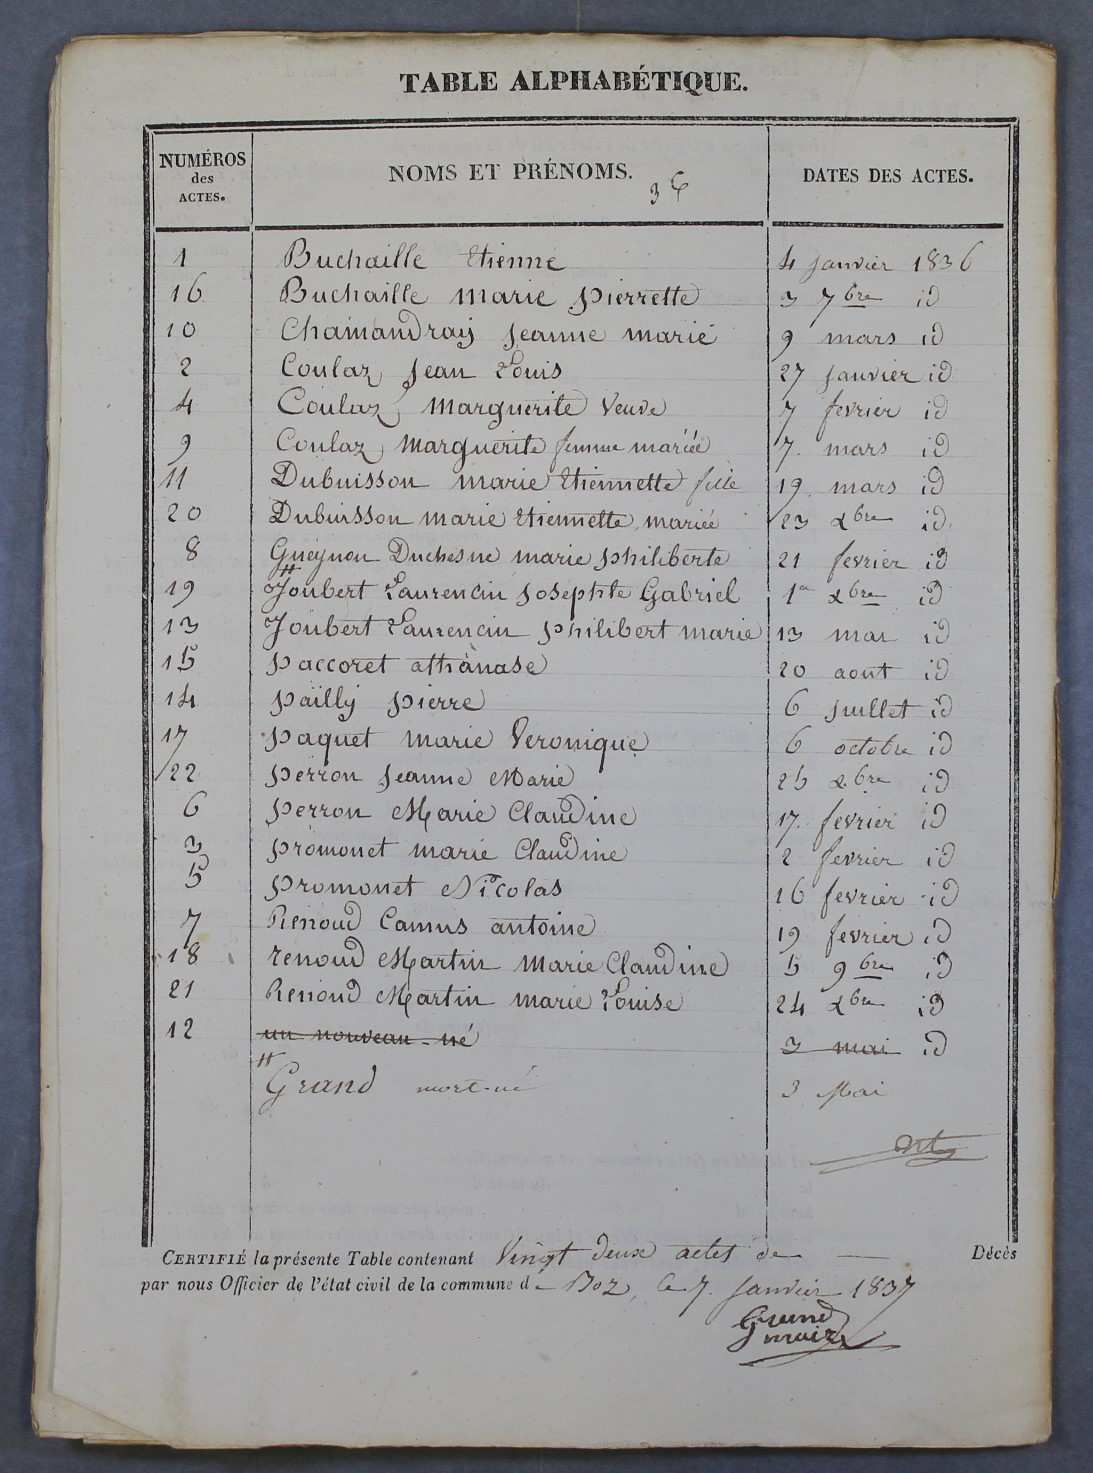 TABLE ALPHABÉTIQUE.
NUMÉROS des ACTES. NOMS ET PRÉNOMS. DATES DES ACTES.
36
1 Buchaille Etienne 4 janvier 1836
16 Buchaille marie pierrette 3 7bre id
10 Chamandray jeanne marie 9 mars id
2 Coulaz jean Louis 27 janvier id
4 Coulaz marguerite veuve 7 fevrier id
9 Coulaz marguerite femme mariée 7. mars id
11 Dubuisson marie Etiennette fille 19 mars id
20 Dubuisson marie Etiennette mariée 23 xbre id
8 Gueynon Duchesne marie philiberte 21 fevrier id
19 Joubert Laurencin josephte Gabriel 1er xbre id
13 Joubert Laurencin philibert marie 13 mai id
15 paccoret athanase 20 aout id
14 pailly pierre 6 juillet id
17 paquet marie Veronique 6 octobre id
22 perron jeanne Marie 25 xbre id
6 perron Marie Claudine 17. fevrier id
3 promonet marie Claudine 2 fevrier id
5 promonet Nicolas 16 fevrier id
7 Renoud Camus antoine 19 fevrier id
18 renoud Martin marie Claudine 5 9bre id
21 Renoud Martin marie Louise 24 xbre id
12 un nouveau-né 3 mai id
Grand mort-né 3 Mai
CERTIFIÉ la présente Table contenant Vingt deux actes de Décès
par nous Officier de l'état civil de la commune de Boz, le 7. janvier 1837
Grand
maire